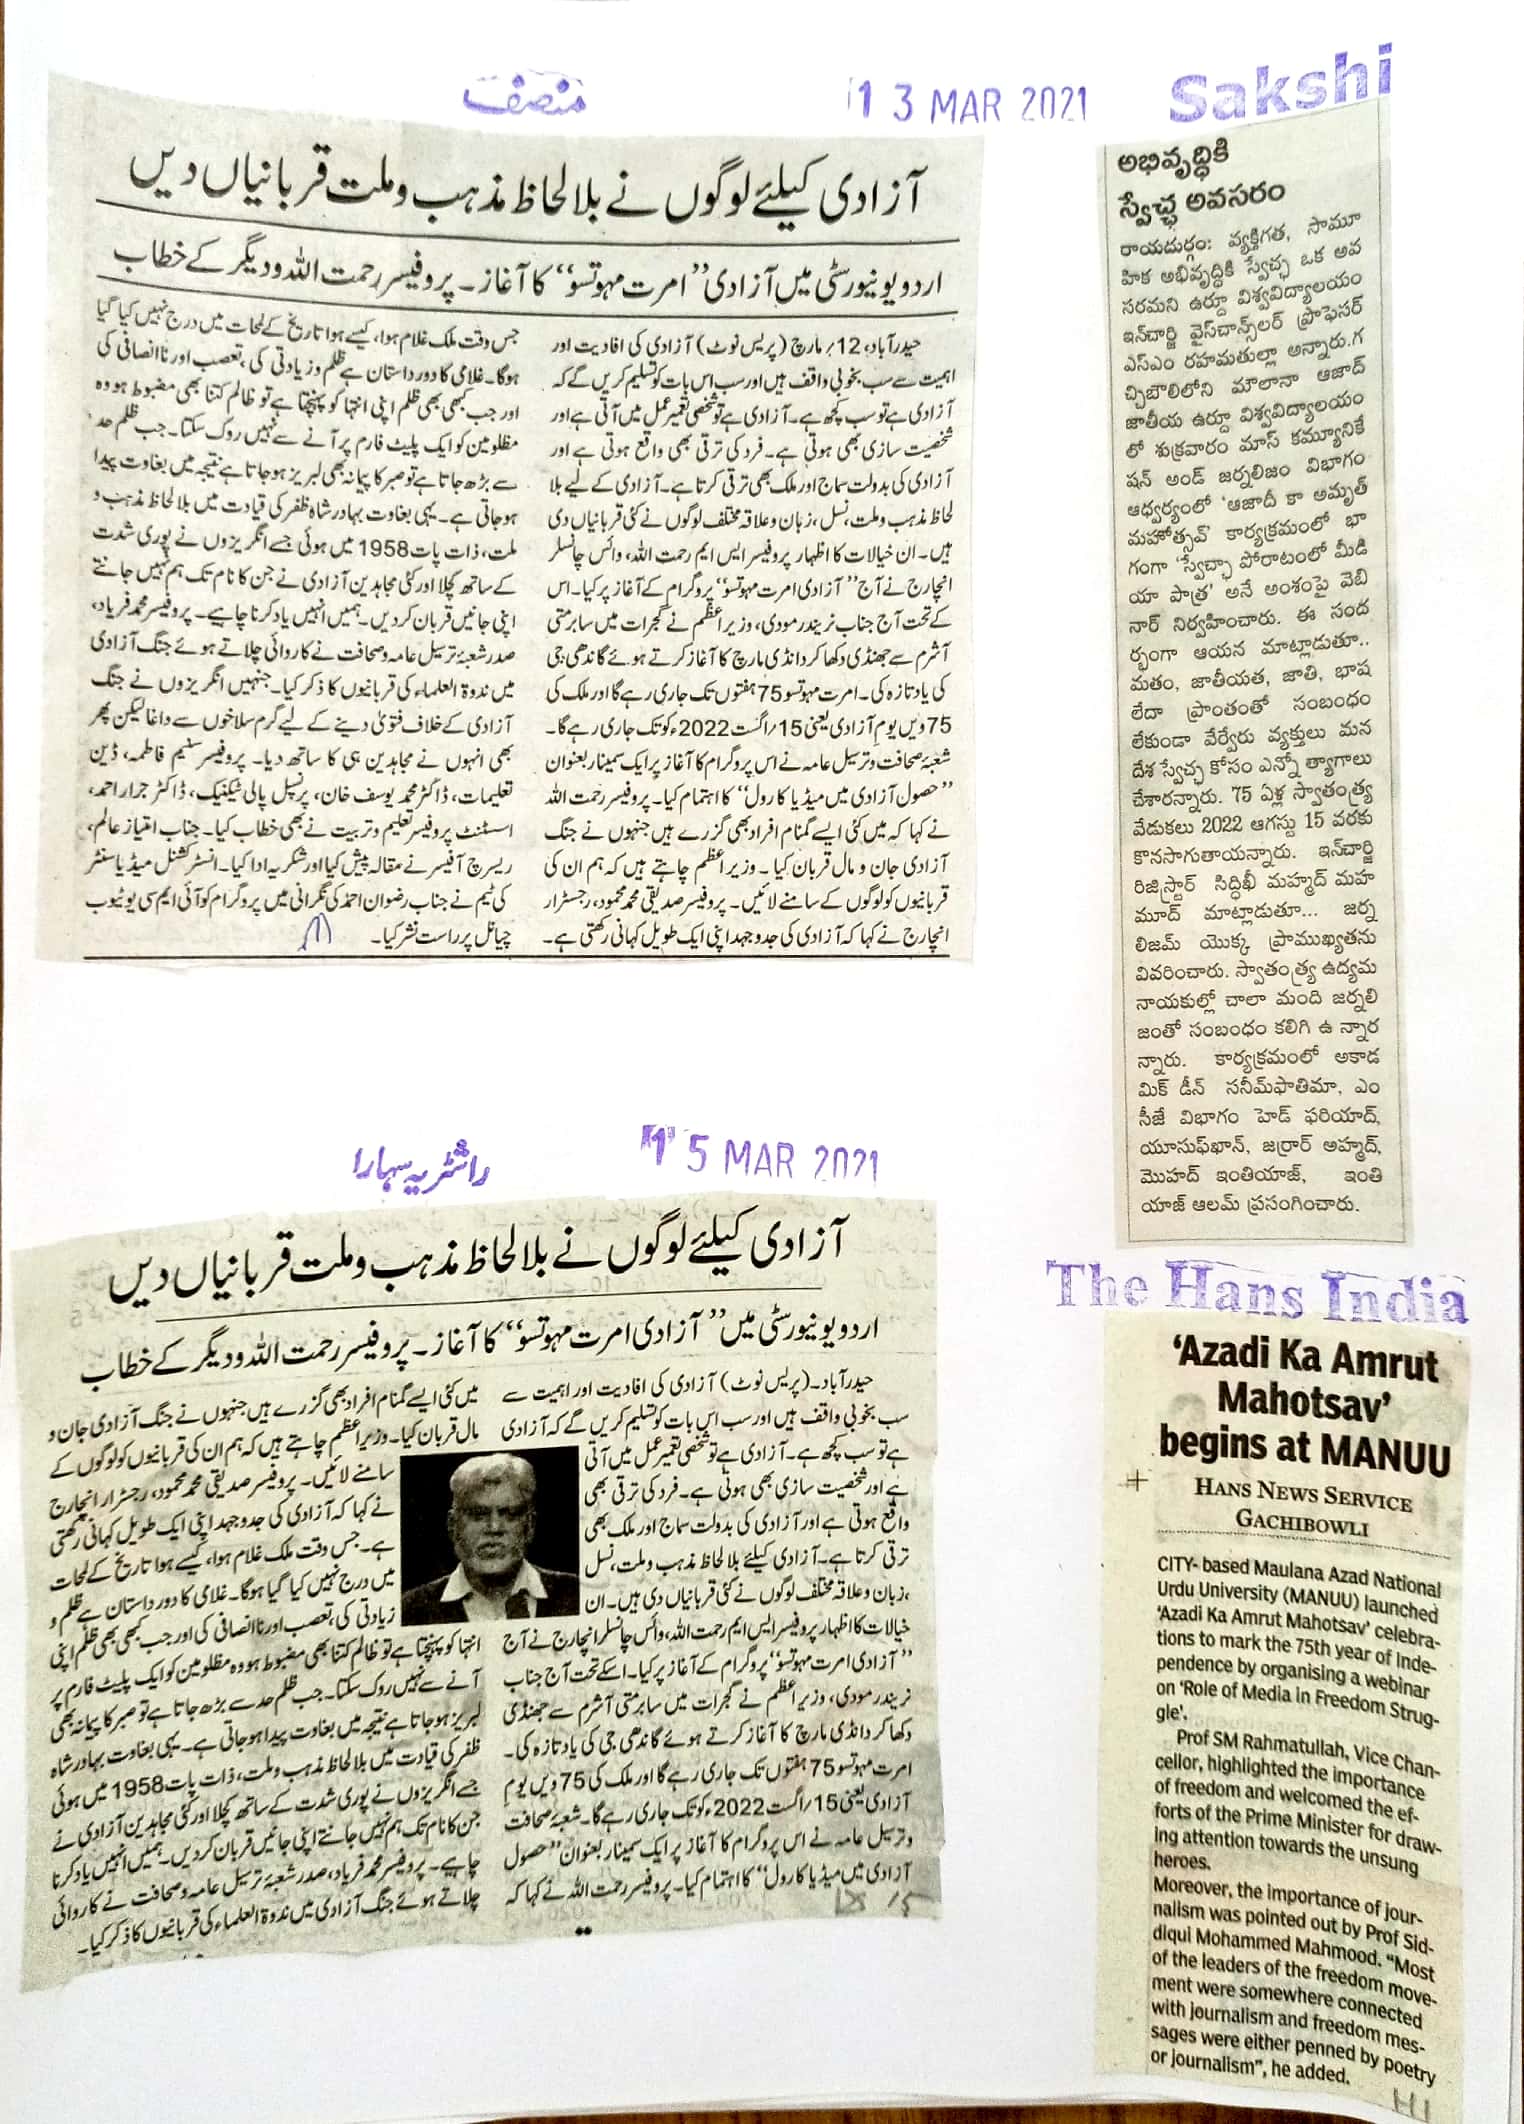 منصف
13 MAR 2021
آزادی کیلئے لوگوں نے بلالحاظ مذہب وملت قربانیاں دیں
اردو یونیورسٹی میں آزادی ”امرت مہوتسو“ کا آغاز۔ پروفیسر رحمت اللہ ودیگر کے خطاب
حیدرآباد، 12؍مارچ (پریس نوٹ) آزادی کی افادیت اور
اہمیت سے سب بخوبی واقف ہیں اور سب اس بات کو تسلیم کریں گے کہ
آزادی ہے تو سب کچھ ہے۔ آزادی ہے تو شخصی تعمیر عمل میں آتی ہے اور
شخصیت سازی بھی ہوتی ہے۔ فرد کی ترقی بھی واقع ہوتی ہے اور
آزادی کی بدولت سماج اور ملک بھی ترقی کرتا ہے۔ آزادی کے لیے بلا
لحاظ مذہب وملت، نسل، زبان وعلاقہ مختلف لوگوں نے کئی قربانیاں دی
ہیں۔ ان خیالات کا اظہار پروفیسر ایس ایم رحمت اللہ، وائس چانسلر
انچارج نے آج ”آزادی امرت مہوتسو“ پروگرام کے آغاز پر کیا۔ اس
کے تحت آج جناب نریندر مودی، وزیر اعظم نے گجرات میں سابرمتی
آشرم سے جھنڈی دکھا کر دانڈی مارچ کا آغاز کرتے ہوئے گاندھی جی
کی یاد تازہ کی۔ امرت مہوتسو 75 ہفتوں تک جاری رہے گا اور ملک کی
75 ویں یوم آزادی یعنی 15؍اگست 2022ء کو تک جاری رہے گا۔
شعبۂ صحافت وترسیل عامہ نے اس پروگرام کا آغاز پر ایک سمینار بعنوان
”حصول آزادی میں میڈیا کا رول“ کا اہتمام کیا۔ پروفیسر رحمت اللہ
نے کہا کہ میں کئی ایسے گمنام افراد بھی گزرے ہیں جنہوں نے جنگ
آزادی جان و مال قربان کیا۔ وزیر اعظم چاہتے ہیں کہ ہم ان کی
قربانیوں کو لوگوں کے سامنے لائیں۔ پروفیسر صدیقی محمد محمود، رجسٹرار
انچارج نے کہا کہ آزادی کی جدوجہد اپنی ایک طویل کہانی رکھتی ہے۔
جس وقت ملک غلام ہوا، کیسے ہوا تاریخ کے لمحات میں درج نہیں کیا گیا
ہوگا۔ غلامی کا دور داستان ہے ظلم وزیادتی کی، تعصب اور ناانصافی کی
اور جب کبھی بھی ظلم اپنی انتہا کو پہنچتا ہے تو ظالم کتنا بھی مضبوط ہو وہ
مظلومین کو ایک پلیٹ فارم پر آنے سے نہیں روک سکتا۔ جب ظلم حد
سے بڑھ جاتا ہے تو صبر کا پیمانہ بھی لبریز ہو جاتا ہے نتیجہ میں بغاوت پیدا
ہو جاتی ہے۔ یہی بغاوت بہادر شاہ ظفر کی قیادت میں بلالحاظ مذہب و
ملت، ذات پات 1958 میں ہوئی جسے انگریزوں نے پوری شدت
کے ساتھ کچلا اور کئی مجاہدین آزادی نے جن کا نام تک ہم نہیں جانتے
اپنی جانیں قربان کردیں۔ ہمیں انہیں یاد کرنا چاہیے۔ پروفیسر محمد فریاد،
صدر شعبۂ ترسیل عامہ وصحافت نے کاروائی چلاتے ہوئے جنگ آزادی
میں ندوۃ العلماء کی قربانیوں کا ذکر کیا۔ جنہیں انگریزوں نے جنگ
آزادی کے خلاف فتویٰ دینے کے لیے گرم سلاخوں سے داغا لیکن پھر
بھی انہوں نے مجاہدین ہی کا ساتھ دیا۔ پروفیسر سنیم فاطمہ، ڈین
تعلیمات، ڈاکٹر محمد یوسف خان، پرنسپل پالی ٹیکنیک، ڈاکٹر جرار احمد،
اسسٹنٹ پروفیسر تعلیم وتربیت نے بھی خطاب کیا۔ جناب امتیاز عالم،
ریسرچ آفیسر نے مقالہ پیش کیا اور شکریہ ادا کیا۔ انسٹرکشنل میڈیا سنٹر
کی ٹیم نے جناب رضوان احمد کی نگرانی میں پروگرام کو آئی ایم سی یوٹیوب
چیانل پر راست نشر کیا۔
Sakshi
అభివృద్ధికి
స్వేచ్ఛ అవసరం
రాయదుర్గం: వ్యక్తిగత, సామూ
హిక అభివృద్ధికి స్వేచ్ఛ ఒక అవ
సరమని ఉర్దూ విశ్వవిద్యాలయం
ఇన్‌చార్జి వైస్‌చాన్స్‌లర్ ప్రొఫెసర్
ఎస్ఎం రహమతుల్లా అన్నారు.గ
చ్చిబౌలిలోని మౌలానా ఆజాద్
జాతీయ ఉర్దూ విశ్వవిద్యాలయం
లో శుక్రవారం మాస్ కమ్యూనికే
షన్ అండ్ జర్నలిజం విభాగం
ఆధ్వర్యంలో 'ఆజాదీ కా అమృత్
మహోత్సవ్' కార్యక్రమంలో భా
గంగా 'స్వేచ్ఛా పోరాటంలో మీడి
యా పాత్ర' అనే అంశంపై వెబి
నార్ నిర్వహించారు. ఈ సంద
ర్భంగా ఆయన మాట్లాడుతూ..
మతం, జాతీయత, జాతి, భాష
లేదా ప్రాంతంతో సంబంధం
లేకుండా వేర్వేరు వ్యక్తులు మన
దేశ స్వేచ్ఛ కోసం ఎన్నో త్యాగాలు
చేశారన్నారు. 75 ఏళ్ల స్వాతంత్ర్య
వేడుకలు 2022 ఆగస్టు 15 వరకు
కొనసాగుతాయన్నారు. ఇన్‌చార్జి
రిజిస్ట్రార్ సిద్ధిఖీ మహ్మద్ మహ
మూద్ మాట్లాడుతూ... జర్న
లిజమ్ యొక్క ప్రాముఖ్యతను
వివరించారు. స్వాతంత్ర్య ఉద్యమ
నాయకుల్లో చాలా మంది జర్నలి
జంతో సంబంధం కలిగి ఉ న్నార
న్నారు. కార్యక్రమంలో అకాడ
మిక్ డీన్ సనీమ్‌ఫాతిమా, ఎం
సీజే విభాగం హెడ్ ఫరియాద్,
యూసుఫ్‌ఖాన్, జర్రార్ అహ్మద్,
మొహద్ ఇంతియాజ్, ఇంతి
యాజ్ ఆలమ్ ప్రసంగించారు.
راشٹریہ سہارا
15 MAR 2021
آزادی کیلئے لوگوں نے بلالحاظ مذہب وملت قربانیاں دیں
اردو یونیورسٹی میں ”آزادی امرت مہوتسو“ کا آغاز۔ پروفیسر رحمت اللہ ودیگر کے خطاب
حیدرآباد۔ (پریس نوٹ) آزادی کی افادیت اور اہمیت سے
سب بخوبی واقف ہیں اور سب اس بات کو تسلیم کریں گے کہ آزادی
ہے تو سب کچھ ہے۔ آزادی ہے تو شخصی تعمیر عمل میں آتی
ہے اور شخصیت سازی بھی ہوتی ہے۔ فرد کی ترقی بھی
واقع ہوتی ہے اور آزادی کی بدولت سماج اور ملک بھی
ترقی کرتا ہے۔ آزادی کیلئے بلالحاظ مذہب وملت، نسل
،زبان وعلاقہ مختلف لوگوں نے کئی قربانیاں دی ہیں۔ ان
خیالات کا اظہار پروفیسر ایس ایم رحمت اللہ، وائس چانسلر انچارج نے آج
”آزادی امرت مہوتسو“ پروگرام کے آغاز پر کیا۔ اسکے تحت آج جناب
نریندر مودی، وزیر اعظم نے گجرات میں سابرمتی آشرم سے جھنڈی
دکھا کر دانڈی مارچ کا آغاز کرتے ہوئے گاندھی جی کی یاد تازہ کی۔
امرت مہوتسو 75 ہفتوں تک جاری رہے گا اور ملک کی 75 ویں یوم
آزادی یعنی 15؍اگست 2022ء کو تک جاری رہے گا۔ شعبۂ صحافت
وترسیل عامہ نے اس پروگرام کا آغاز پر ایک سمینار بعنوان ”حصول
آزادی میں میڈیا کا رول“ کا اہتمام کیا۔ پروفیسر رحمت اللہ نے کہا کہ
میں کئی ایسے گمنام افراد بھی گزرے ہیں جنہوں نے جنگ آزادی جان و
مال قربان کیا۔ وزیر اعظم چاہتے ہیں کہ ہم ان کی قربانیوں کو لوگوں کے
سامنے لائیں۔ پروفیسر صدیقی محمد محمود، رجسٹرار انچارج
نے کہا کہ آزادی کی جدوجہد اپنی ایک طویل کہانی رکھتی
ہے۔ جس وقت ملک غلام ہوا، کیسے ہوا تاریخ کے لمحات
میں درج نہیں کیا گیا ہوگا۔ غلامی کا دور داستان ہے ظلم و
زیادتی کی، تعصب اور ناانصافی کی اور جب کبھی بھی ظلم اپنی
انتہا کو پہنچتا ہے تو ظالم کتنا بھی مضبوط ہو وہ مظلومین کو ایک پلیٹ فارم پر
آنے سے نہیں روک سکتا۔ جب ظلم حد سے بڑھ جاتا ہے تو صبر کا پیمانہ بھی
لبریز ہو جاتا ہے نتیجہ میں بغاوت پیدا ہو جاتی ہے۔ یہی بغاوت بہادر شاہ
ظفر کی قیادت میں بلالحاظ مذہب وملت، ذات پات 1958 میں ہوئی
جسے انگریزوں نے پوری شدت کے ساتھ کچلا اور کئی مجاہدین آزادی نے
جن کا نام تک ہم نہیں جانتے اپنی جانیں قربان کردیں۔ ہمیں انہیں یاد کرنا
چاہیے۔ پروفیسر محمد فریاد، صدر شعبۂ ترسیل عامہ وصحافت نے کاروائی
چلاتے ہوئے جنگ آزادی میں ندوۃ العلماء کی قربانیوں کا ذکر کیا۔
The Hans India
'Azadi Ka Amrut
Mahotsav'
begins at MANUU
HANS NEWS SERVICE
GACHIBOWLI
CITY- based Maulana Azad National
Urdu University (MANUU) launched
'Azadi Ka Amrut Mahotsav' celebra-
tions to mark the 75th year of Inde-
pendence by organising a webinar
on 'Role of Media in Freedom Strug-
gle'.
Prof SM Rahmatullah, Vice Chan-
cellor, highlighted the importance
of freedom and welcomed the ef-
forts of the Prime Minister for draw-
ing attention towards the unsung
heroes.
Moreover, the importance of jour-
nalism was pointed out by Prof Sid-
diqui Mohammed Mahmood. "Most
of the leaders of the freedom move-
ment were somewhere connected
with journalism and freedom mes-
sages were either penned by poetry
or journalism", he added.